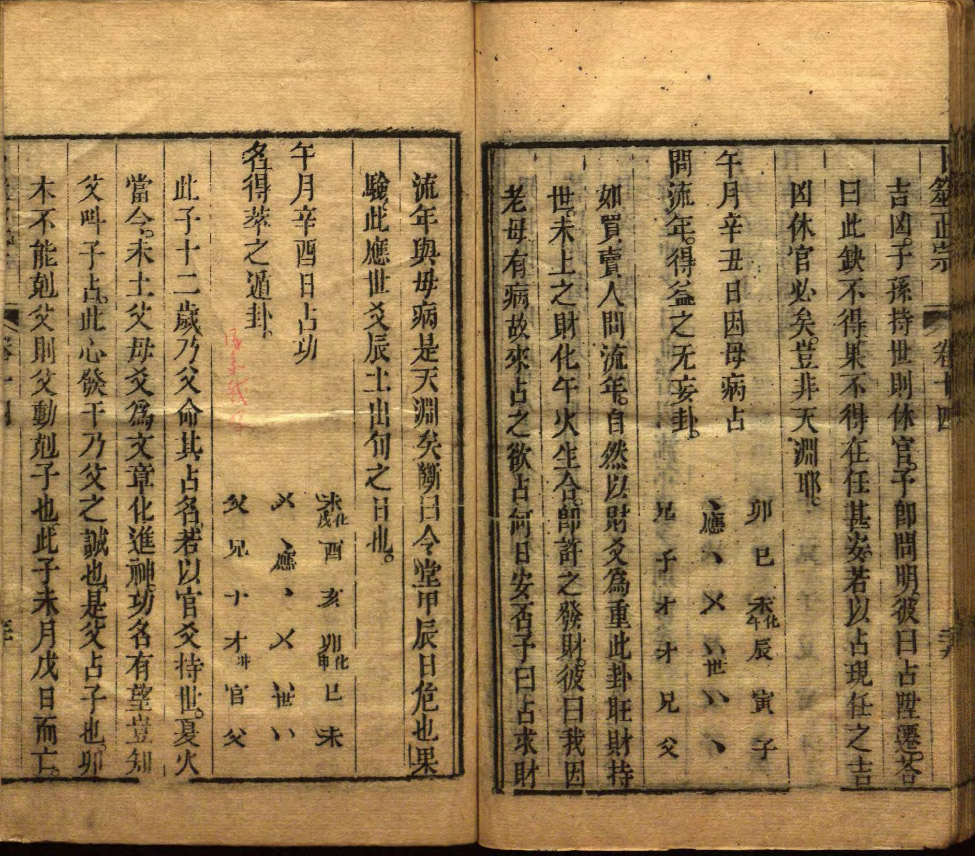 卜筮正宗 卷十四
吉凶子孫持世則休官予即問明彼曰占陞遷答
曰此缺不得果不得在任甚安若以占現任之吉
凶休官必矣豈非天淵耶
午月辛丑日因母病占
問流年得益之无妄卦
卯 巳 未化午 辰 寅 子
應 世
兄 子 才 才 兄 父
如買賣人問流年自然以財爻為重此卦旺財持
世未上之財化午火生合即許之發財彼曰我因
老母有病故來占之欲占何日安否予曰占求財
流年與母病是天淵矣斷曰令堂甲辰日危也果
驗此應世爻辰土出旬之日也
午月辛酉日占功
名得萃之遁卦
未化戌 酉 亥 卯化申 巳 未
應 世
父 兄 子 才 官 父
此子十二歲乃父命其占名若以官爻持世夏火
當令未土父母爻為文章化進神功名有望豈知
父呌子占此心發于乃父之誠也是父占子也卯
木不能剋父則父動剋子也此子未月戊日而亡